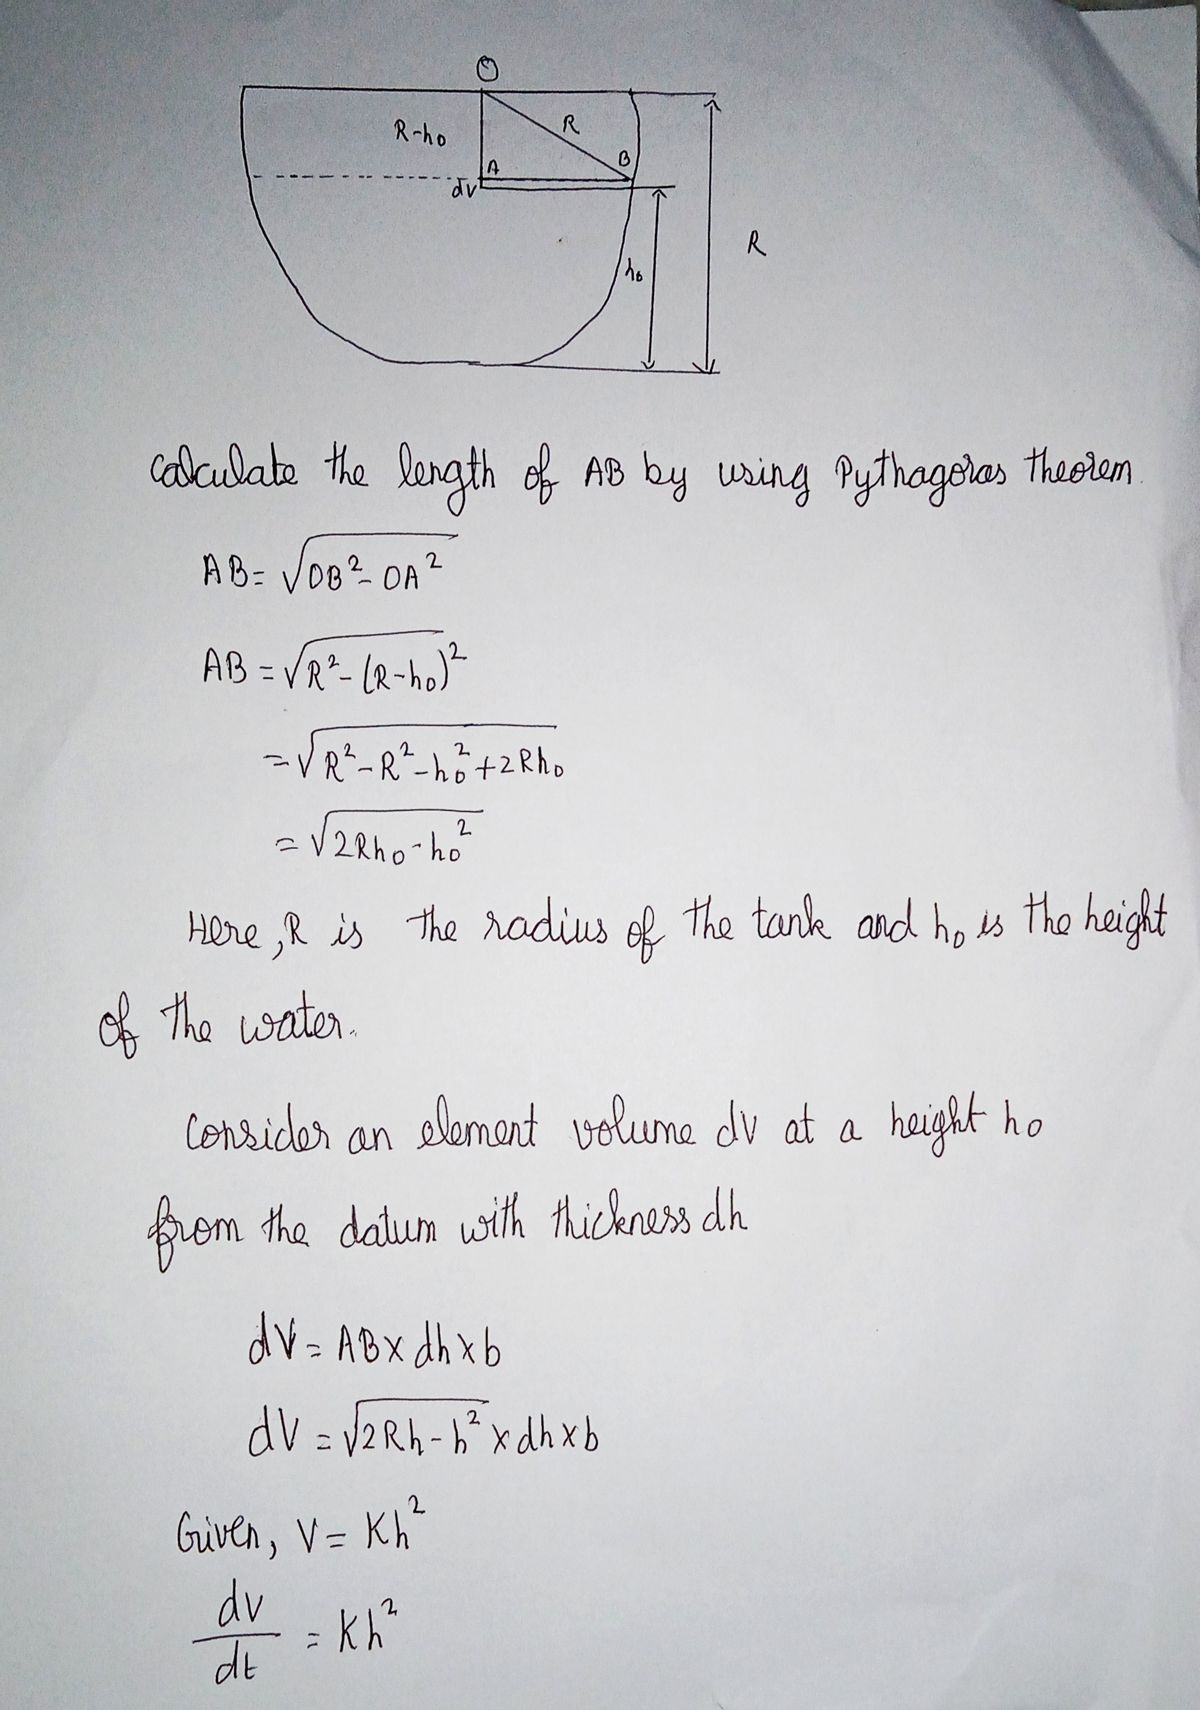 O
R-h₀
R
A
B
dv
h₀
R
Calculate the length of AB by using Pythagoras theorem.
AB = √(OB² - OA²)
AB = √(R² - (R-h₀)²)
= √(R² - R² - h₀² + 2Rh₀)
= √(2Rh₀ - h₀²)
Here, R is the radius of the tank and h₀ is the height
of the water.
Consider an element volume dv at a height h₀
from the datum with thickness dh
dV = AB x dh x b
dV = √(2Rh - h²) x dh x b
Given, V = Kh²
dv/dt = Kh²